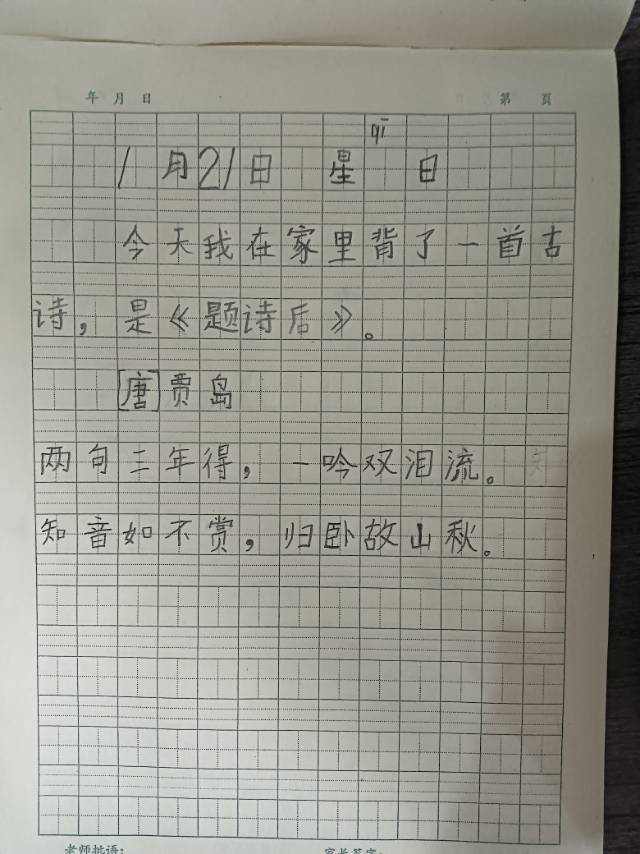 年 月 日 第 页
qī
1月21日 星 日
今天我在家里背了一首古
诗，是《题诗后》。
[唐]贾岛
两句三年得，一吟双泪流。
知音如不赏，归卧故山秋。
老师批语：